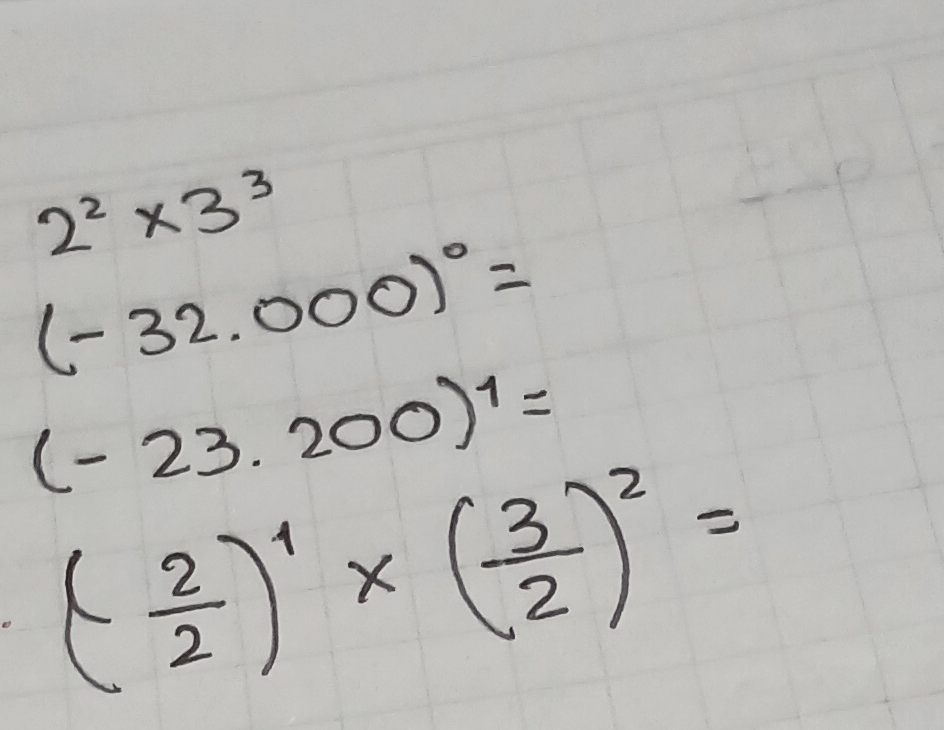 2² × 3³
(- 32.000)⁰ =
(- 23.200)¹ =
(- 2/2)¹ × (3/2)² =